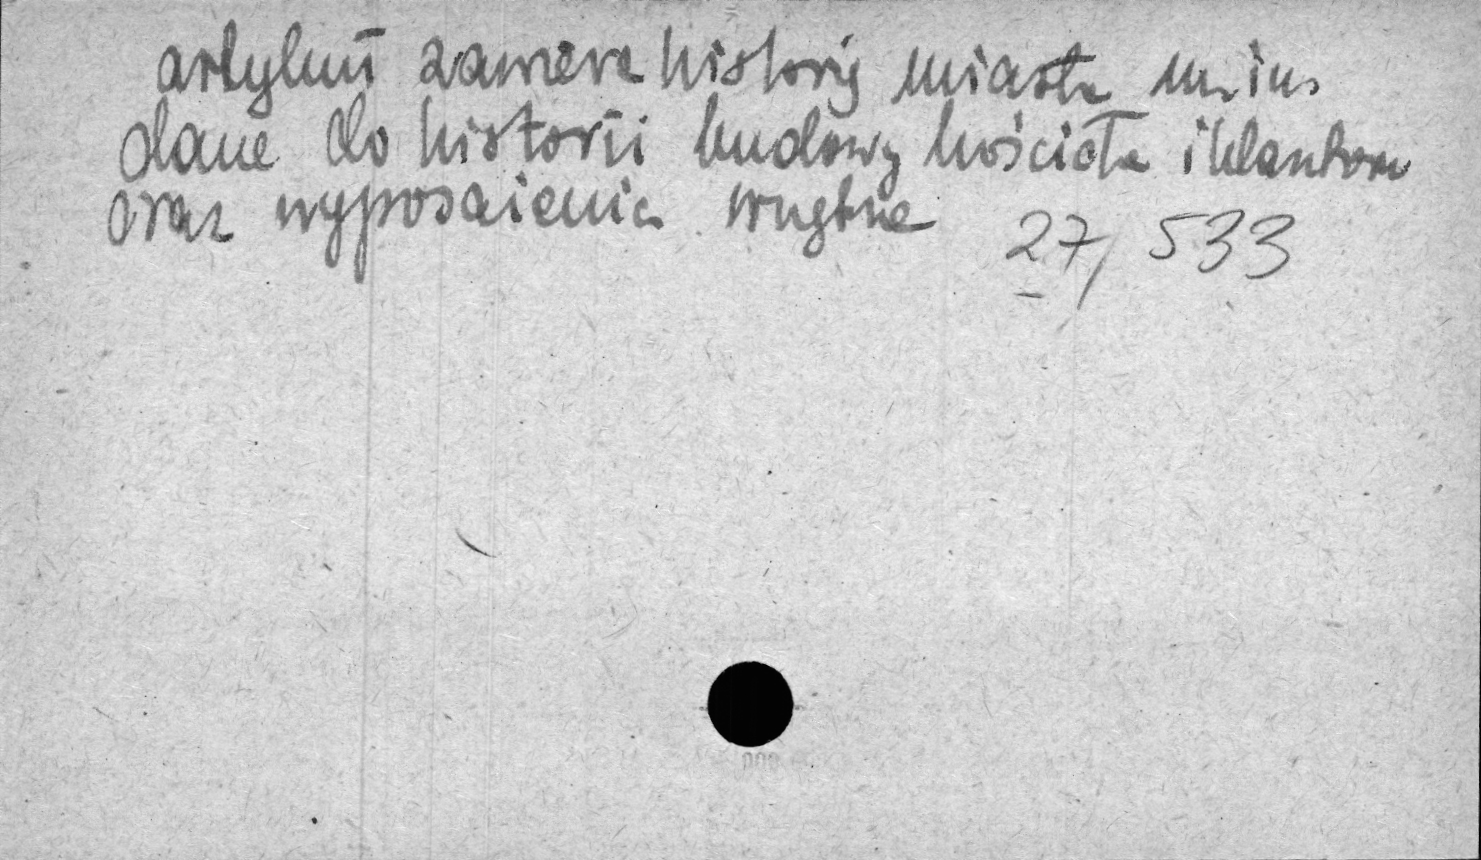 artykuł zawiera historię miasta m. in.
dane do historii budowy kościoła i klasztoru
oraz wyposażenia wnętrza 27/533